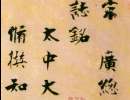 宗廣總
誌銘
太中大
脩撰知